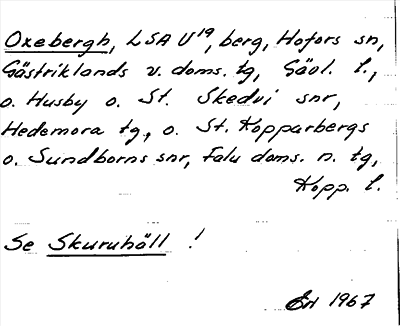 Oxebergh, LSA U¹⁹, berg, Hofors sn,
Gästriklands v. doms. tg, Gävl. l.,
o. Husby o. St. Skedvi snr,
Hedemora tg, o. St. Kopparbergs
o. Sundborns snr, Falu doms. n. tg,
Kopp. l.
Se Skuruhäll !
1967